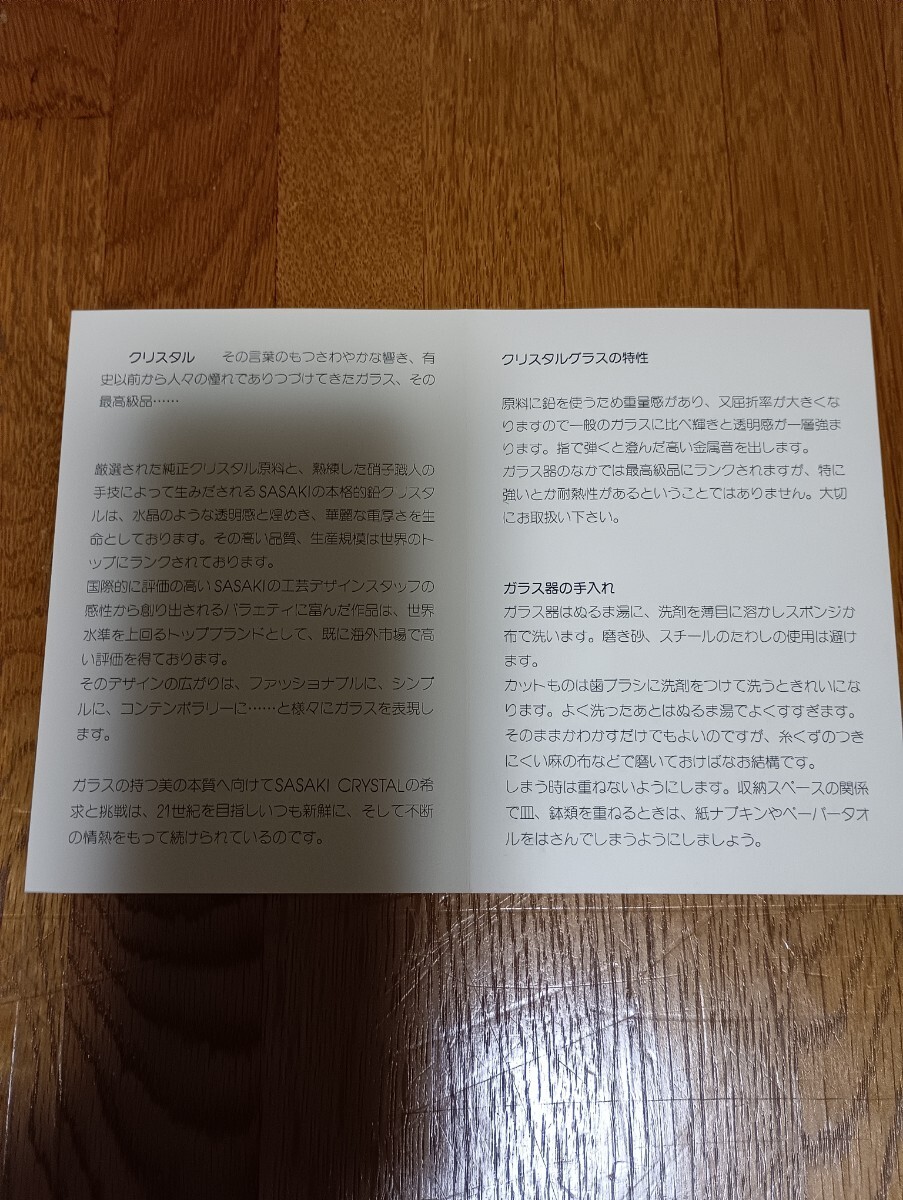 クリスタル　その言葉のもつさわやかな響き、有
史以前から人々の憧れでありつづけてきたガラス、その
最高級品……
厳選された純正クリスタル原料と、熟練した硝子職人の
手技によって生みだされるSASAKIの本格的鉛クリスタ
ルは、水晶のような透明感と煌めき、華麗な重厚さを生
命としております。その高い品質、生産規模は世界のト
ップにランクされております。
国際的に評価の高いSASAKIの工芸デザインスタッフの
感性から創り出されるバラェティに富んだ作品は、世界
水準を上回るトップブランドとして、既に海外市場で高
い評価を得ております。
そのデザインの広がりは、ファッショナブルに、シンプ
ルに、コンテンポラリーに……と様々にガラスを表現し
ます。
ガラスの持つ美の本質へ向けてSASAKI CRYSTALの希
求と挑戦は、21世紀を目指しいつも新鮮に、そして不断
の情熱をもって続けられているのです。
クリスタルグラスの特性
原料に鉛を使うため重量感があり、又屈折率が大きくな
りますので一般のガラスに比べ輝きと透明感が一層強ま
ります。指で弾くと澄んだ高い金属音を出します。
ガラス器のなかでは最高級品にランクされますが、特に
強いとか耐熱性があるということではありません。大切
にお取扱い下さい。
ガラス器の手入れ
ガラス器はぬるま湯に、洗剤を薄目に溶かしスポンジか
布で洗います。磨き砂、スチールのたわしの使用は避け
ます。
カットものは歯ブラシに洗剤をつけて洗うときれいにな
ります。よく洗ったあとはぬるま湯でよくすすぎます。
そのままかわかすだけでもよいのですが、糸くずのつき
にくい麻の布などで磨いておけばなお結構です。
しまう時は重ねないようにします。収納スペースの関係
で皿、鉢類を重ねるときは、紙ナプキンやペーパータオ
ルをはさんでしまうようにしましょう。